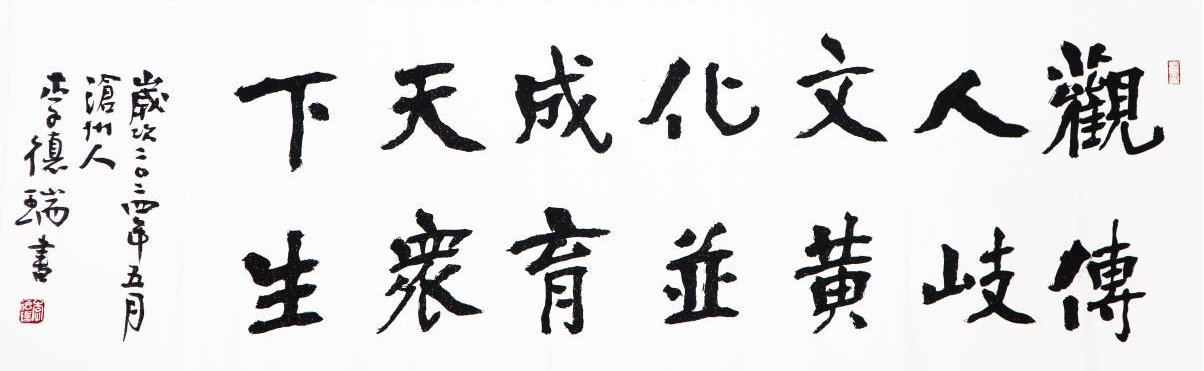 觀人文化成天下
傳岐黃並育衆生
歲次二〇二四年五月
滄州人
李德瑞書